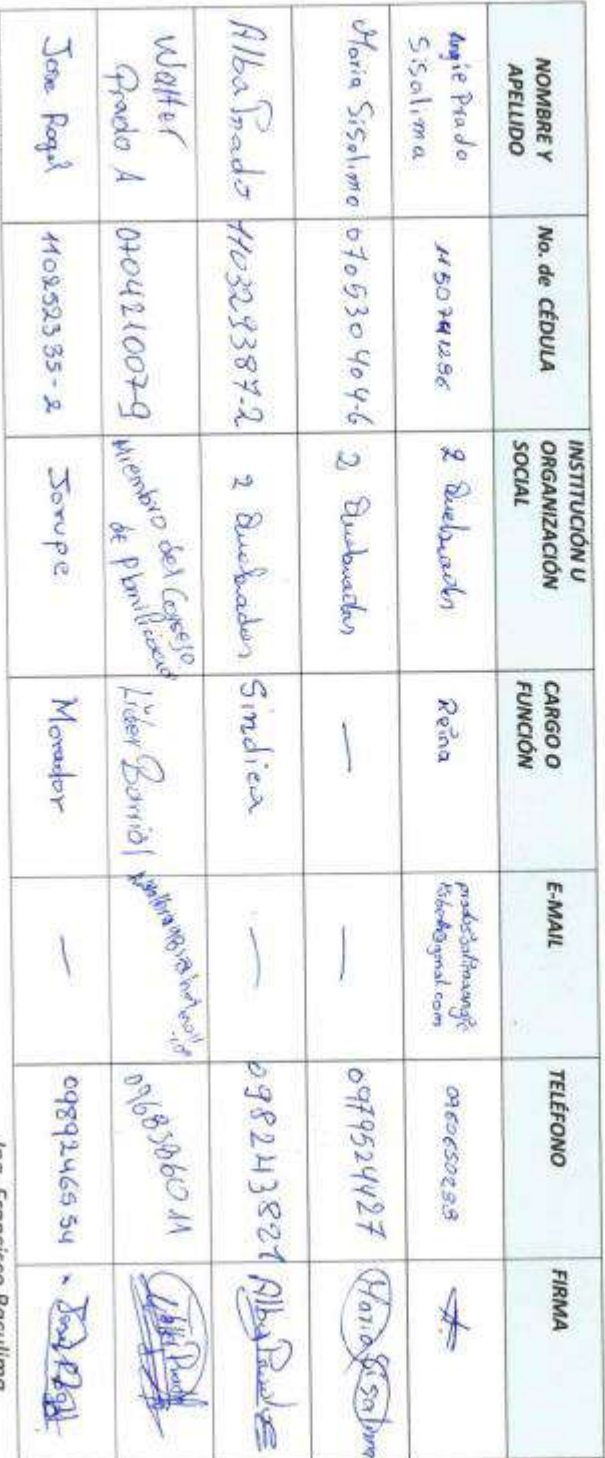 NOMBRE Y APELLIDO
No. de CÉDULA
INSTITUCIÓN U ORGANIZACIÓN SOCIAL
CARGO O FUNCIÓN
E-MAIL
TELÉFONO
FIRMA
Angie Prado Sisalima
2 Quebradas
Reina
0960650298
Maria Sisalima
070530404-6
2 Quebradas
—
—
0979524427
Maria Sisalima
Alba Prado
110329387-2
2 Quebradas
Sindica
—
098243821
Alba Prado
Walter Prado A
0704210079
Miembro del Consejo de planificacion
Líder Barrial
José Rogel
110252335-2
Jorupe
Morador
—
0989246554
Ing. Francisco Pasulima